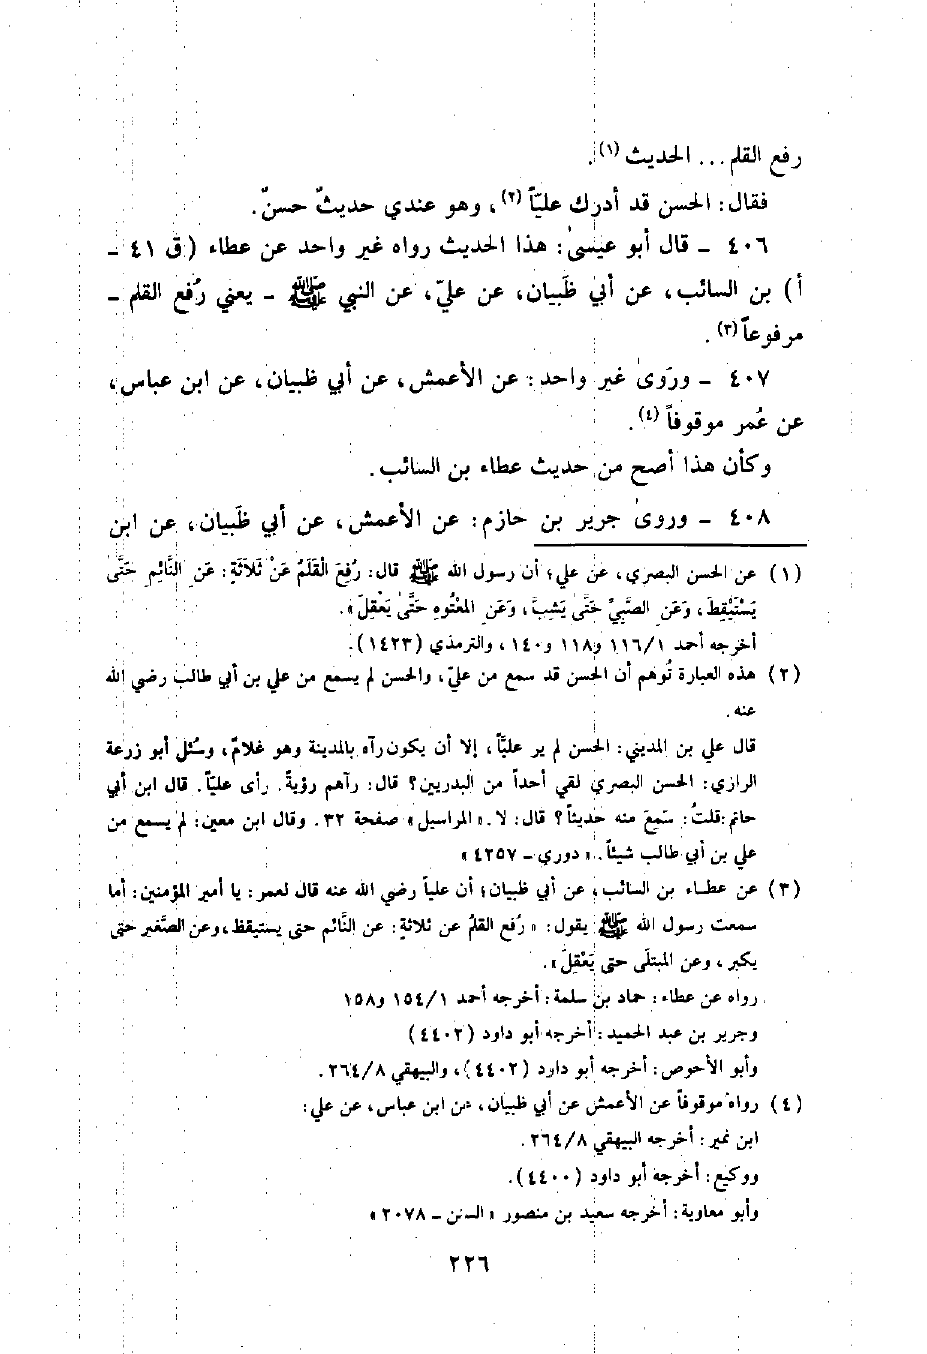 رفع القلم... الحديث (١).
فقال: الحسن قد أدرك عليّاً (٢)، وهو عندي حديثٌ حسنٌ.
٤٠٦ ـ قال أبو عيسىٰ: هذا الحديث رواه غير واحد عن عطاء (ق ٤١ ـ
أ) بن السائب، عن أبي ظَبيان، عن عليّ، عن النبي ﷺ ـ يعني رُفع القلم ـ
مرفوعاً (٣).
٤٠٧ ـ ورَوىٰ غير واحد: عن الأعمش، عن أبي ظبيان، عن ابن عباس،
عن عُمر موقوفاً (٤).
وكأن هذا أصح من حديث عطاء بن السائب.
٤٠٨ ـ وروىٰ جرير بن حازم: عن الأعمش، عن أبي ظَبيان، عن ابن
(١) عن الحسن البصري، عن علي؛ أن رسول الله ﷺ قال: رُفِعَ الْقَلَمُ عَنْ ثَلَاثَةٍ: عَنِ النَّائِمِ حَتَّىٰ
يَسْتَيْقِظَ، وَعَنِ الصَّبِيِّ حَتَّىٰ يَشِبَّ، وَعَنِ المَعْتُوهِ حَتَّىٰ يَعْقِلَ».
أخرجه أحمد ١١٦/١ و١١٨ و١٤٠، والترمذي (١٤٢٣).
(٢) هذه العبارة تُوهم أن الحسن قد سمع من عليّ، والحسن لم يسمع من علي بن أبي طالب رضي الله
عنه.
قال علي بن المديني: الحسن لم ير عليَّاً، إلا أن يكون رآه بالمدينة وهو غلامٌ، وسُئل أبو زرعة
الرازي: الحسن البصري لقي أحداً من البدريين؟ قال: رآهم رؤيةً. رأى عليّاً. قال ابن أبي
حاتم: قلتُ: سَمِعَ منه حديثاً؟ قال: لا. «المراسيل» صفحة ٣٢. وقال ابن معين: لم يسمع من
علي بن أبي طالب شيئاً. «دوري ـ ٤٢٥٧»
(٣) عن عطاء بن السائب، عن أبي ظبيان؛ أن علياً رضي الله عنه قال لعمر: يا أمير المؤمنين: أما
سمعت رسول الله ﷺ يقول: «رُفع القلمُ عن ثلاثةٍ: عن النَّائم حتى يستيقظ، وعن الصَّغير حتى
يكبر، وعن المبتلَى حتى يَعْقِلَ».
رواه عن عطاء: حماد بن سلمة: أخرجه أحمد ١٥٤/١ و١٥٨
وجرير بن عبد الحميد: أخرجه أبو داود (٤٤٠٢)
وأبو الأحوص: أخرجه أبو داود (٤٤٠٢)، والبيهقي ٢٦٤/٨.
(٤) رواه موقوفاً عن الأعمش عن أبي ظبيان، عن ابن عباس، عن علي:
ابن نمير: أخرجه البيهقي ٢٦٤/٨.
ووكيع: أخرجه أبو داود (٤٤٠٠).
وأبو معاوية: أخرجه سعيد بن منصور «السنن ـ ٢٠٧٨»
٢٢٦